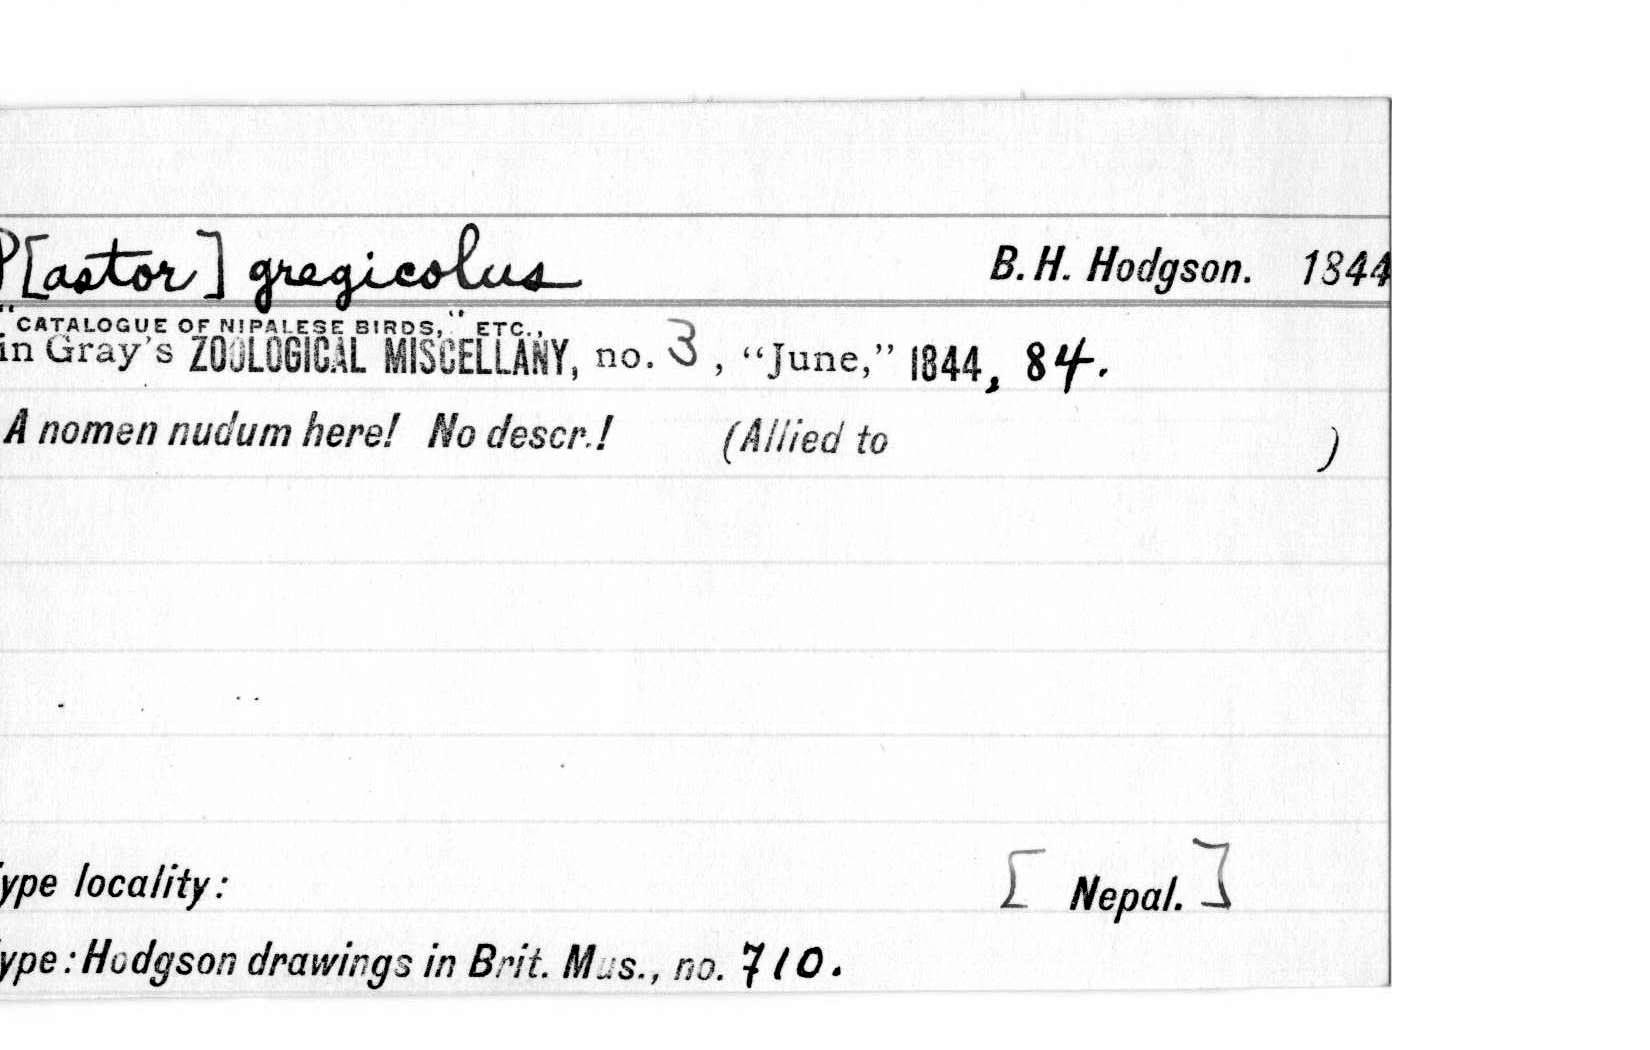 P[astor] gregicolus B. H. Hodgson. 1844
"CATALOGUE OF NIPALESE BIRDS," ETC.,
in Gray's ZOOLOGICAL MISCELLANY, no. 3, "June," 1844, 84.
A nomen nudum here! No descr.! (Allied to )
ype locality: [Nepal.]
ype: Hodgson drawings in Brit. Mus., no. 710.